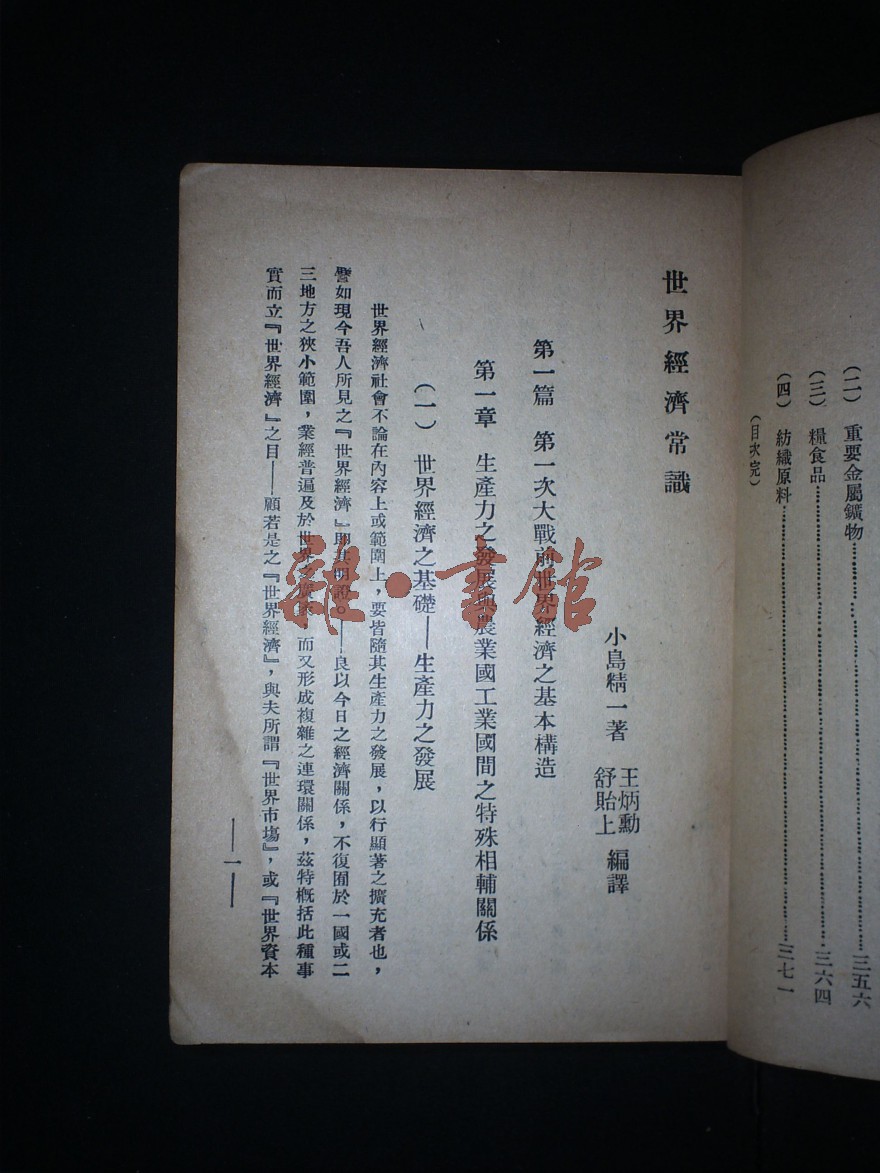 (二) 重要金屬鑛物……三五六
(三) 糧食品……三六四
(四) 紡織原料……三七一
(目次完)
世界經濟常識
小島精一著 王炳勳 舒貽上 編譯
第一篇 第一次大戰前世界經濟之基本構造
第一章 生產力之發展與農業國工業國間之特殊相輔關係
(一) 世界經濟之基礎——生產力之發展
世界經濟社會不論在內容上或範圍上，要皆隨其生產力之發展，以行顯著之擴充者也，
譬如現今吾人所見之『世界經濟』則其明證。——良以今日之經濟關係，不復囿於一國或二
三地方之狹小範圍，業經普遍及於世界之廣，而又形成複雜之連環關係，茲特概括此種事
實而立『世界經濟』之目——顧若是之『世界經濟』，與夫所謂『世界市場』，或『世界資本
——一——
雜·書館